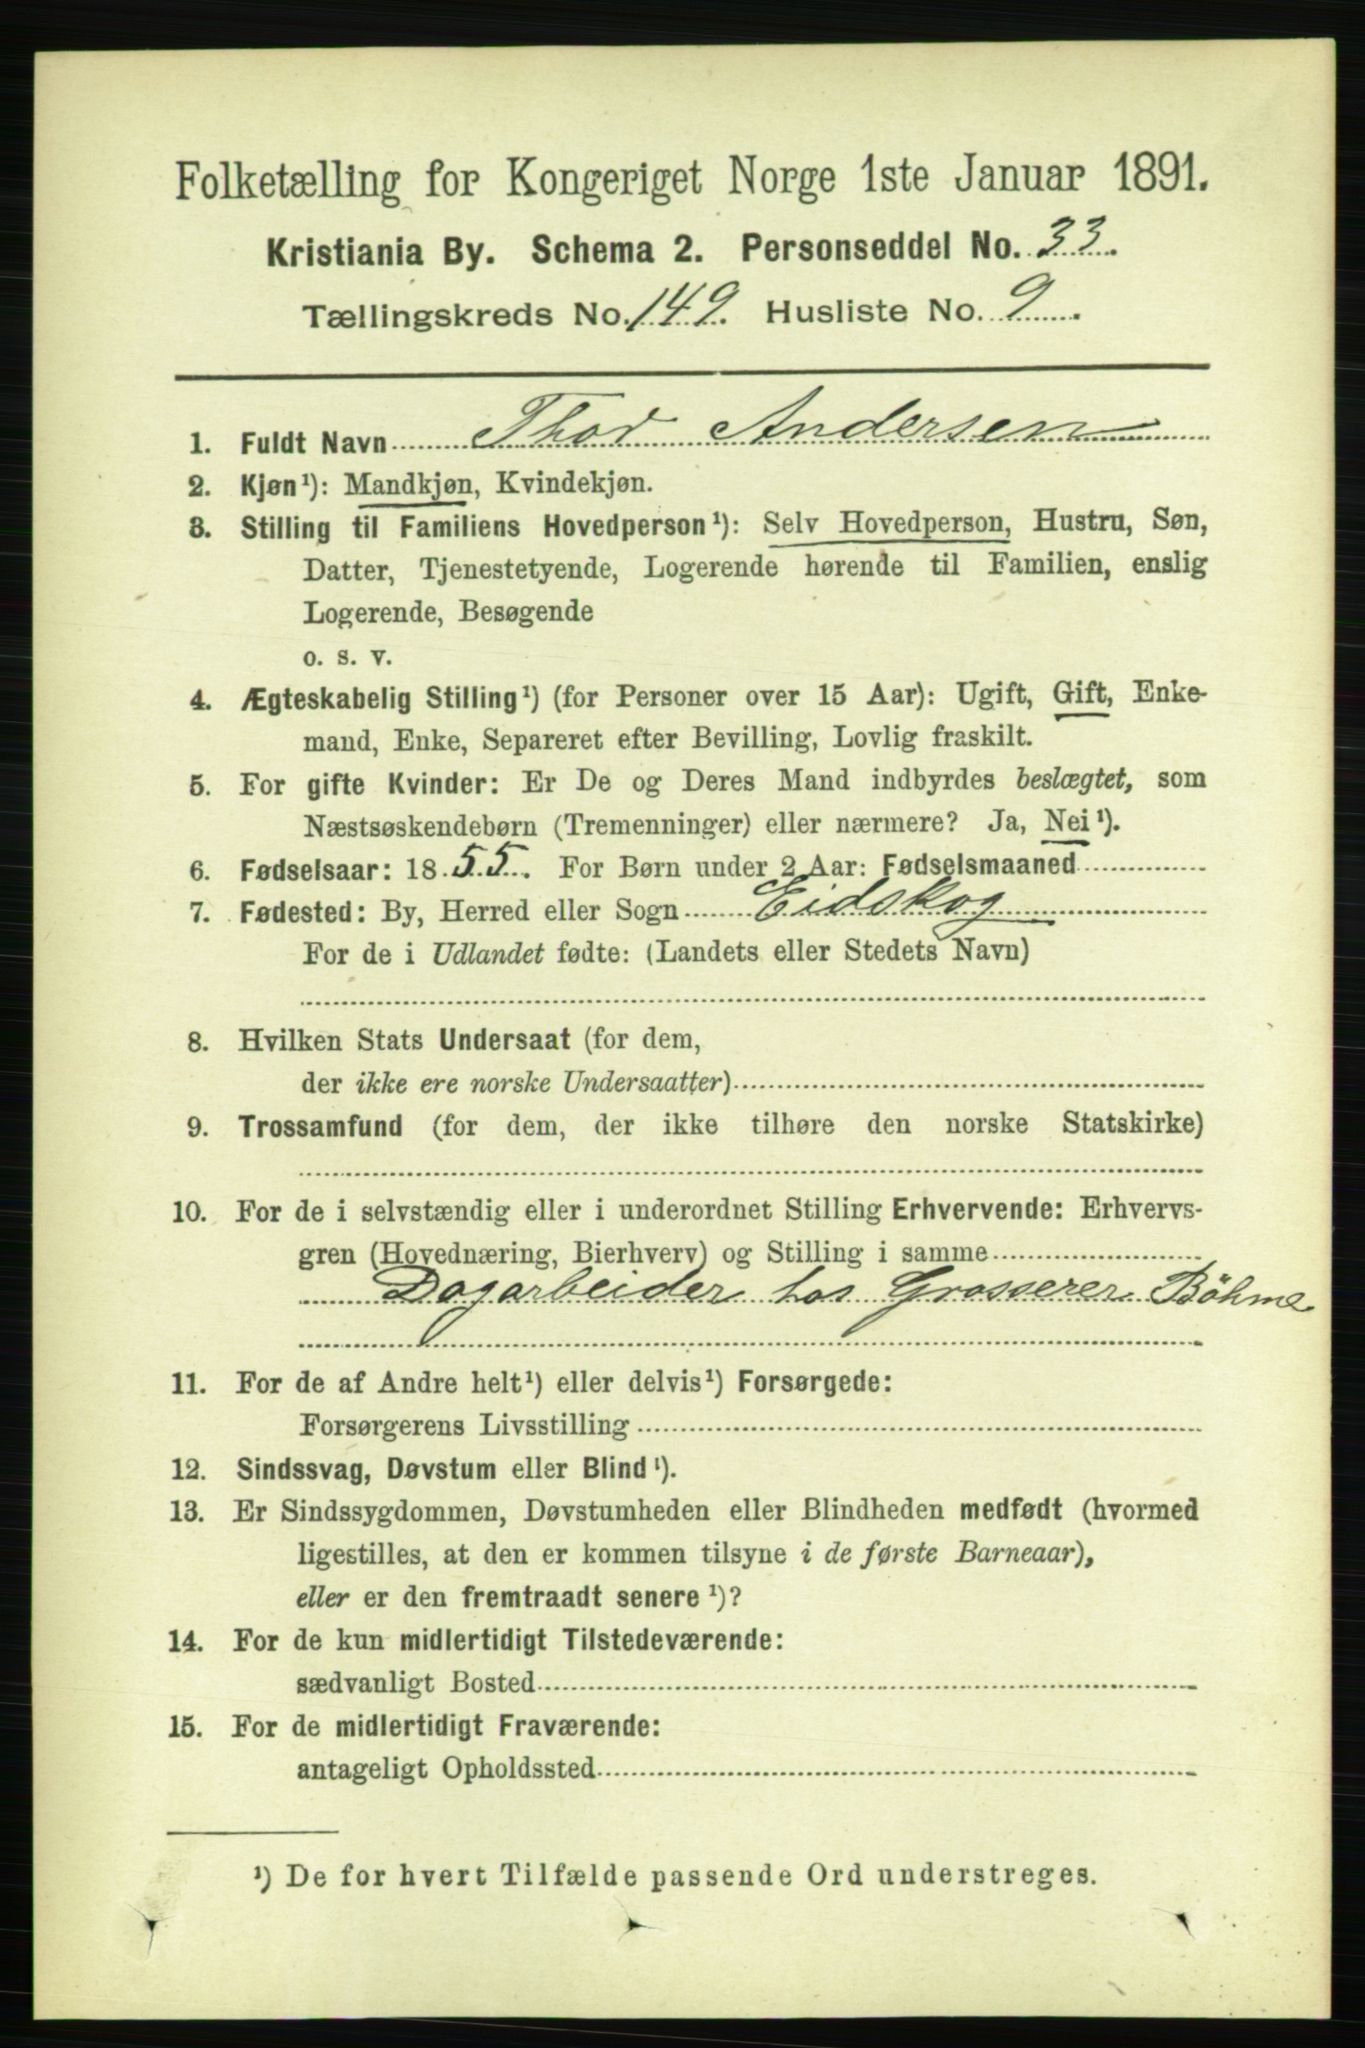 Folketælling for Kongeriget Norge 1ste Januar 1891.
Kristiania By. Schema 2. Personseddel No. 33.
Tællingskreds No. 149. Husliste No. 9.
1. Fuldt Navn Thor Andersen
2. Kjøn¹): Mandkjøn, Kvindekjøn.
3. Stilling til Familiens Hovedperson¹): Selv Hovedperson, Hustru, Søn,
Datter, Tjenestetyende, Logerende hørende til Familien, enslig
Logerende, Besøgende
o. s. v.
4. Ægteskabelig Stilling¹) (for Personer over 15 Aar): Ugift, Gift, Enke-
mand, Enke, Separeret efter Bevilling, Lovlig fraskilt.
5. For gifte Kvinder: Er De og Deres Mand indbyrdes beslægtet, som
Næstsøskendebørn (Tremenninger) eller nærmere? Ja, Nei¹).
6. Fødselsaar: 1855. For Børn under 2 Aar: Fødselsmaaned
7. Fødested: By, Herred eller Sogn Eidskog
For de i Udlandet fødte: (Landets eller Stedets Navn)
8. Hvilken Stats Undersaat (for dem,
der ikke ere norske Undersaatter)
9. Trossamfund (for dem, der ikke tilhøre den norske Statskirke)
10. For de i selvstændig eller i underordnet Stilling Erhvervende: Erhvervs-
gren (Hovednæring, Bierhverv) og Stilling i samme
Dagarbeider hos Grosserer Böhme
11. For de af Andre helt¹) eller delvis¹) Forsørgede:
Forsørgerens Livsstilling
12. Sindssvag, Døvstum eller Blind¹).
13. Er Sindssygdommen, Døvstumheden eller Blindheden medfødt (hvormed
ligestilles, at den er kommen tilsyne i de første Barneaar),
eller er den fremtraadt senere¹)?
14. For de kun midlertidigt Tilstedeværende:
sædvanligt Bosted
15. For de midlertidigt Fraværende:
antageligt Opholdssted
¹) De for hvert Tilfælde passende Ord understreges.